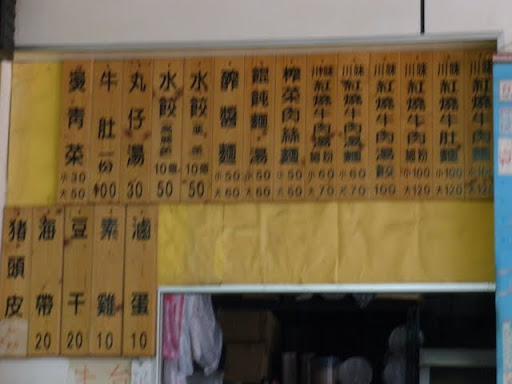 川味紅燒牛肉麵 大120
川味紅燒牛肚麵 小100 大120
川味紅燒牛肉細粉 小100 大120
川味紅燒牛肉湯餃 100
川味紅燒牛肉湯麵 小60 大70
川味紅燒牛肉湯細粉 小60 大70
榨菜肉絲麵 小50 大60
餛飩麵湯 小50 大60
醡醬麵 小50 大60
水餃 10個 50
水餃 10個 50
丸仔湯 30
牛肚一份 100
燙青菜 小30 大50
滷蛋 10
素雞 10
豆干 20
海帶 20
豬頭皮